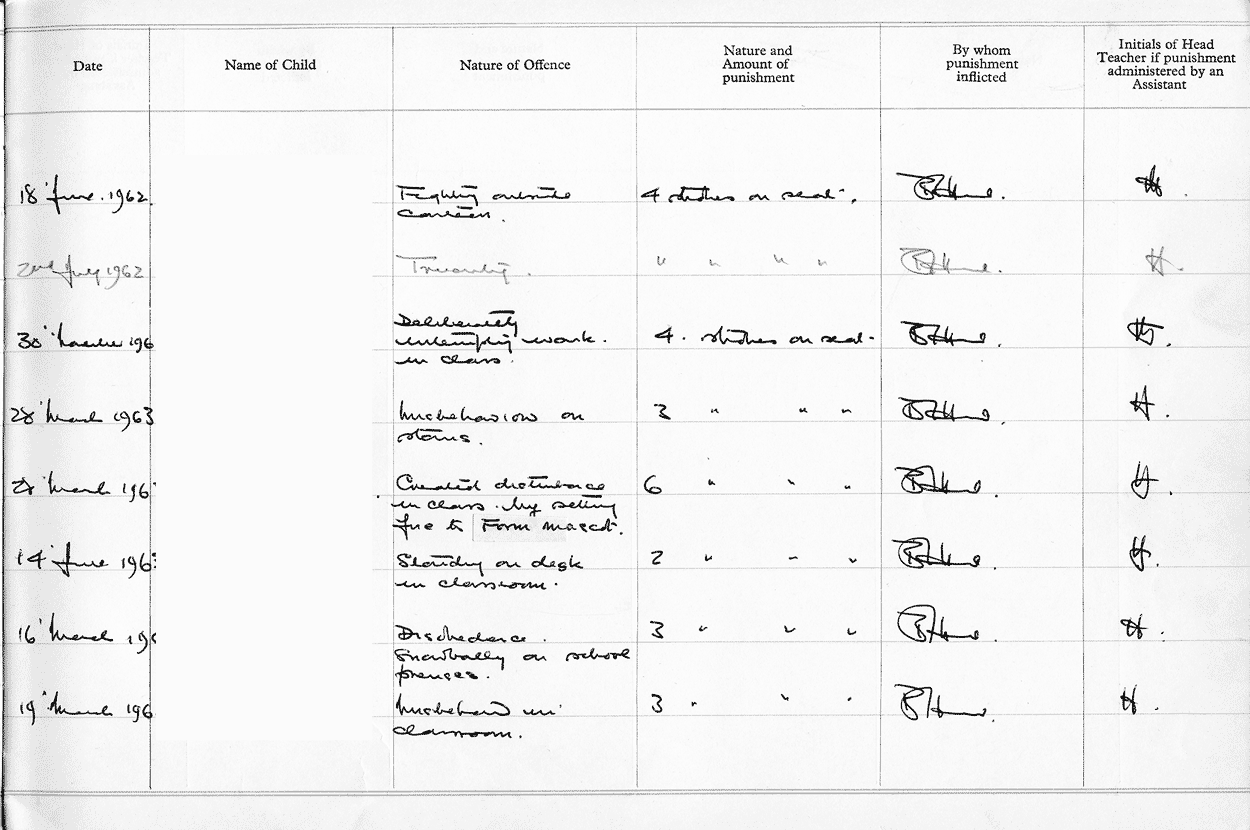 Date
Name of Child
Nature of Offence
Nature and
Amount of
punishment
By whom
punishment
inflicted
Initials of Head
Teacher if punishment
administered by an
Assistant
18 June. 1962
Fighting outside
canteen.
4 strokes on seat.
2nd July 1962
Truanting.
" " " "
30 196
Deliberately
work.
in class.
4. strokes on seat.
28 March 1963
Misbehaviour on
stairs.
3 " " "
March 196
Created disturbance
in class. by setting
fire to Form mascot.
6 " " "
14 June 196
Standing on desk
in classroom.
2 " " "
16 March 19
Disobedience.
Snowballing on school
premises.
3 " " "
19 March 196
in
classroom.
3 " " "
H